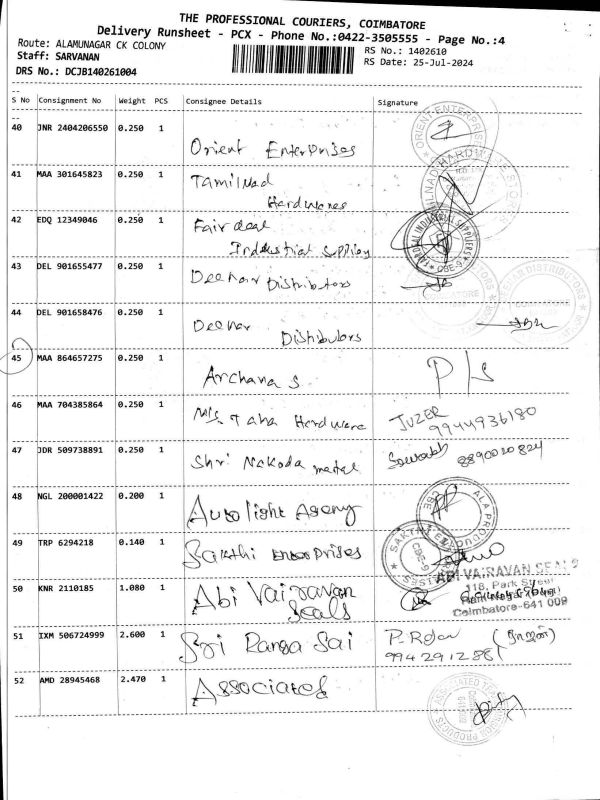 THE PROFESSIONAL COURIERS, COIMBATORE
Delivery Runsheet - PCX - Phone No.:0422-3505555 - Page No.:4
Route: ALAMUNAGAR CK COLONY
RS No.: 1402610
Staff: SARVANAN
RS Date: 25-Jul-2024
DRS No.: DCJB140261004
S No Consignment No Weight PCS Consignee Details Signature
40 JNR 2404206550 0.250 1
Orient Enterprises
41 MAA 301645823 0.250 1 Tamilnad
Hardwares
42 EDQ 12349046 0.250 1 Fair deal
Industrial Suppliey
43 DEL 901655477 0.250 1 Deenar Distributors
44 DEL 901658476 0.250 1 Deenar
Distributors
45 MAA 864657275 0.250 1
Archana S.
46 MAA 704385864 0.250 1 M/s. Taha Hardware JUZER
9944936180
47 JDR 509738891 0.250 1 Shri Nakoda metal Sourabh 8890020824
48 NGL 200001422 0.200 1
Autolight Agency
49 TRP 6294218 0.140 1 Sakthi Enterprises
50 KNR 2110185 1.080 1 Abi Vairavan
Seals
ABI VAIRAVAN SEALS
116, Park Street
Ram Nagar
Coimbatore-641 009
51 IXM 506724999 2.600 1 Sri Ranga Sai
52 AMD 28945468 2.470 1 Associated